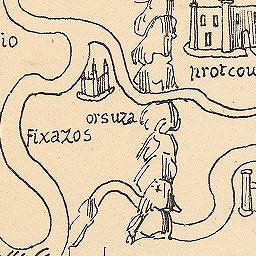 io
protcou
orsuza
fixazos